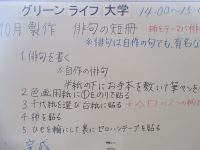 グリーン ライフ 大学 14:00〜15:0
10月 製作 俳句の短冊 柿をテーマに俳
※俳句は自作の句でも、有名な
1. 俳句を書く
※自作の俳句
半紙の下にお手本を敷いて筆ペンを
2. 色画用紙に①をのりで貼る
3. 千代紙を選び台紙に貼る ※△□の2つの
4. 柿を貼る
5. ひもを輪にして裏にセロハンテープを貼る
完成